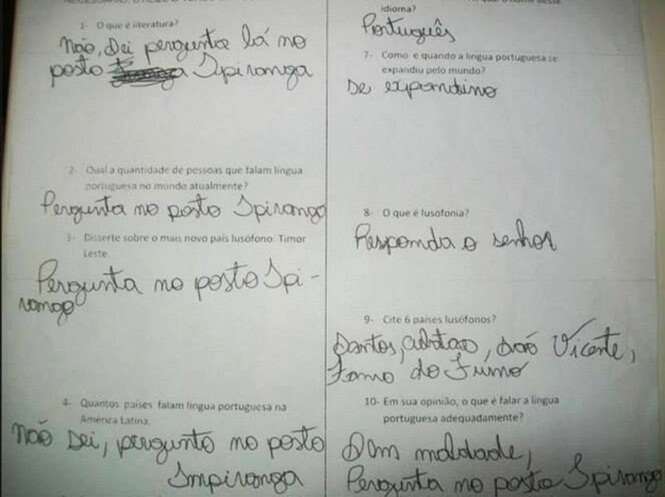 1- O que é literatura?
Não, Dei pergunta lá no
posto Ipiranga
2- Qual a quantidade de pessoas que falam língua
portuguesa no mundo atualmente?
Pergunta no posto Ipiranga
3- Disserte sobre o mais novo país lusófono: Timor
Leste.
Pergunta no posto Ipi-
ranga
4- Quantos países falam língua portuguesa na
América Latina.
Não sei, pergunto no posto
Impiranga
idioma?
Português
7- Como e quando a língua portuguesa se
expandiu pelo mundo?
se expandino
8- O que é lusofonia?
Responda o senhor
9- Cite 6 países lusófonos?
Santos, São Vicente,
10- Em sua opinião, o que é falar a língua
portuguesa adequadamente?
Sem maldade,
Pergunta no posto Ipiranga